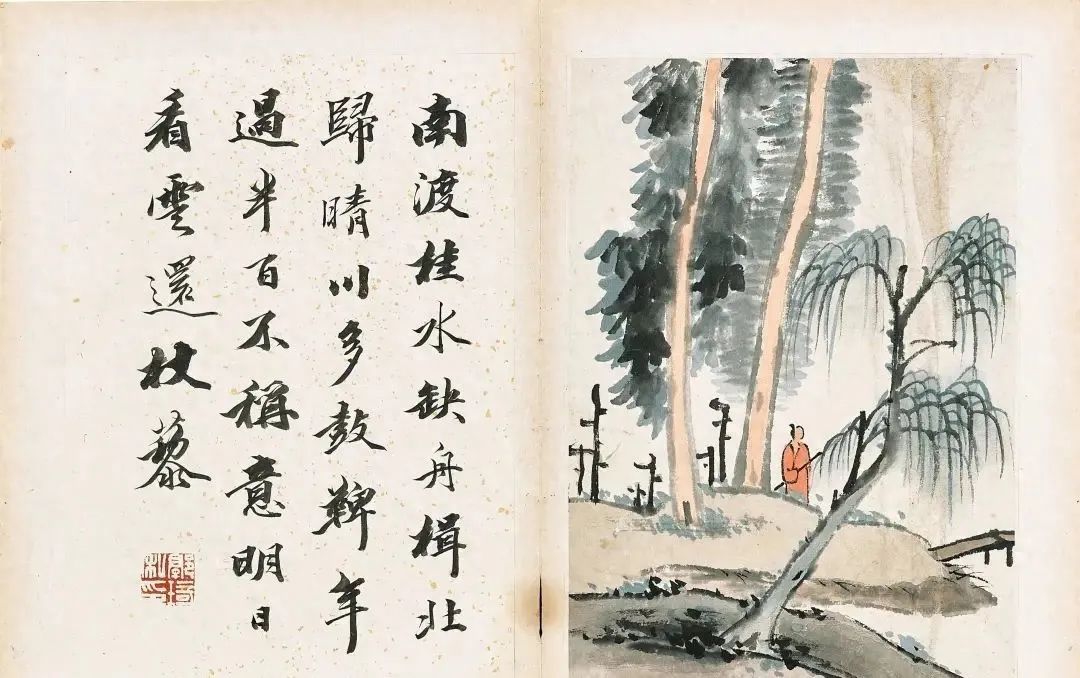 南渡桂水缺舟楫北
歸晴川多鼓鼙年
過半百不稱意明日
看雲還杖藜